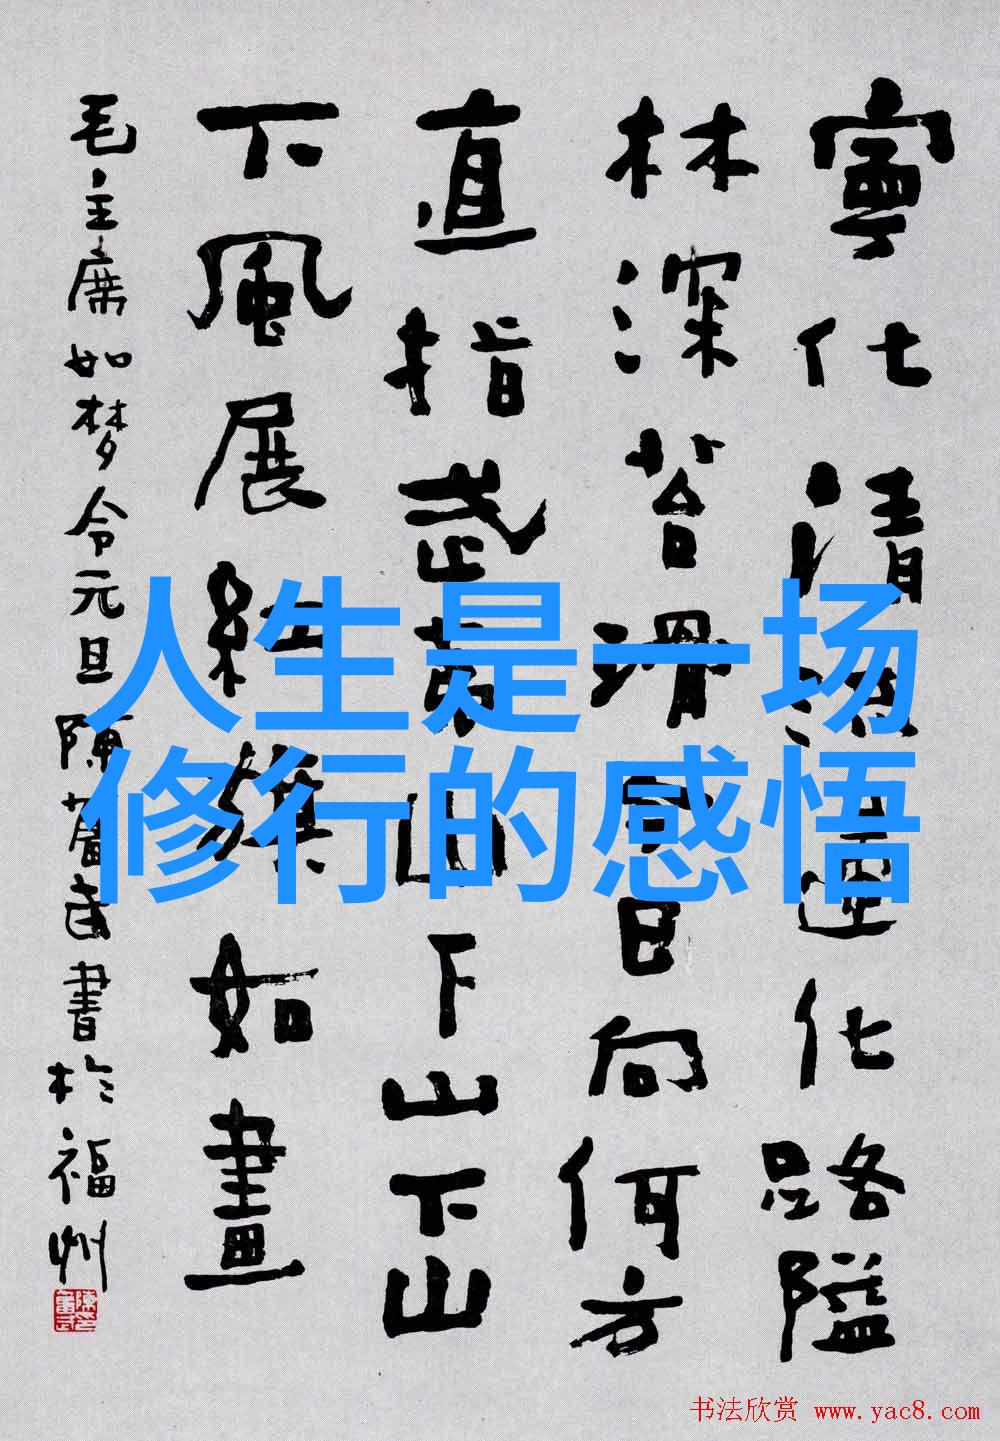 寧化清流化路隘
林深苔滑今日向何方
直指武夷山下山下山
下風展紅旗如畫
毛主席如梦令元旦陳奮武書於福州
人生是一场
修行的感悟
书法欣赏 www.yac8.com